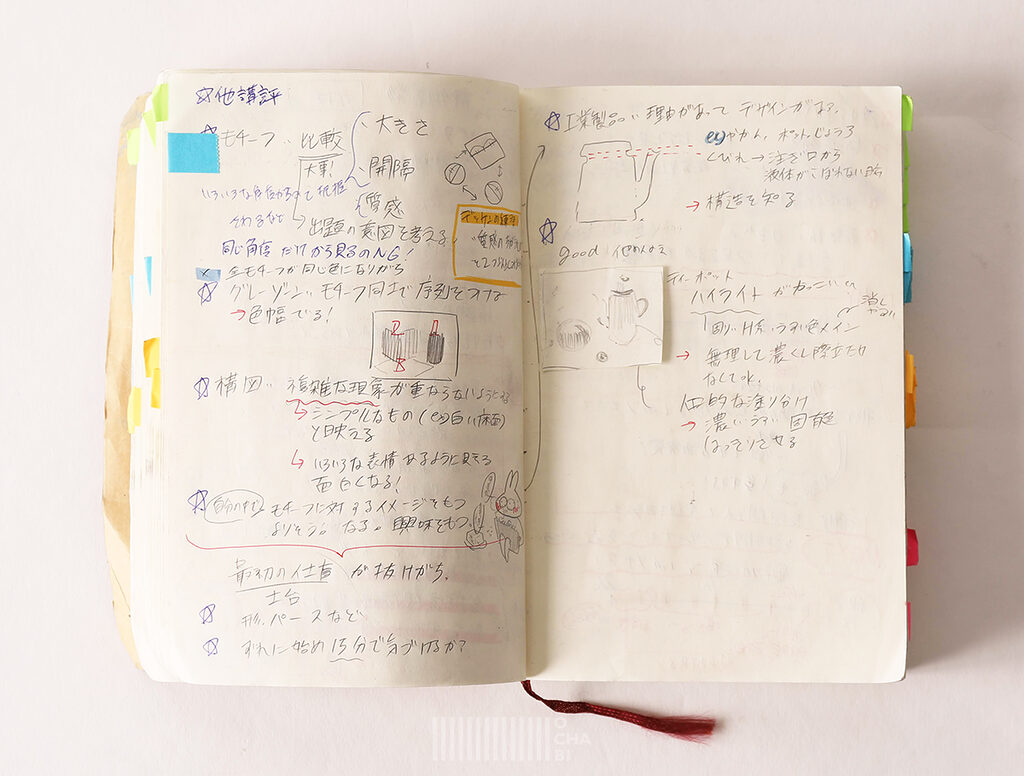 ☆他講評
☆モチーフ‥比較 大きさ
大事! 間隔
質感
いろいろな角度からみて把握
さわるなど → 出題の意図を考える。
同じ角度だけから見るのNG!
全モチーフが同じ色になりがち
☆グレーゾーン‥モチーフ同士で序列をつける
→色幅でる!
☆構図‥複雑な現象が重ならないようにする
→シンプルなもの(ex)白い床面)
と映える
→いろいろな表情あるように見せる
面白くなる!
☆自分の中で モチーフに対するイメージをもつ
なる。興味をもつ。
最初の仕事 が抜けがち。
土台
☆形、パースなど
☆ずれに始め15分で気づけるか?
☆工業製品‥理由があって デザインがある。
ex)やかん、ポット、じょうろ
くびれ→注ぎ口から
液体がこぼれない為
→構造を知る
☆
good 他
ティーポット
ハイライトがかっこいい
消し
うすい色メイン
→無理して濃くし際立たせ
なくてOK。
面的な塗り分け
→濃いうすい
はっきりさせる
OCHABI